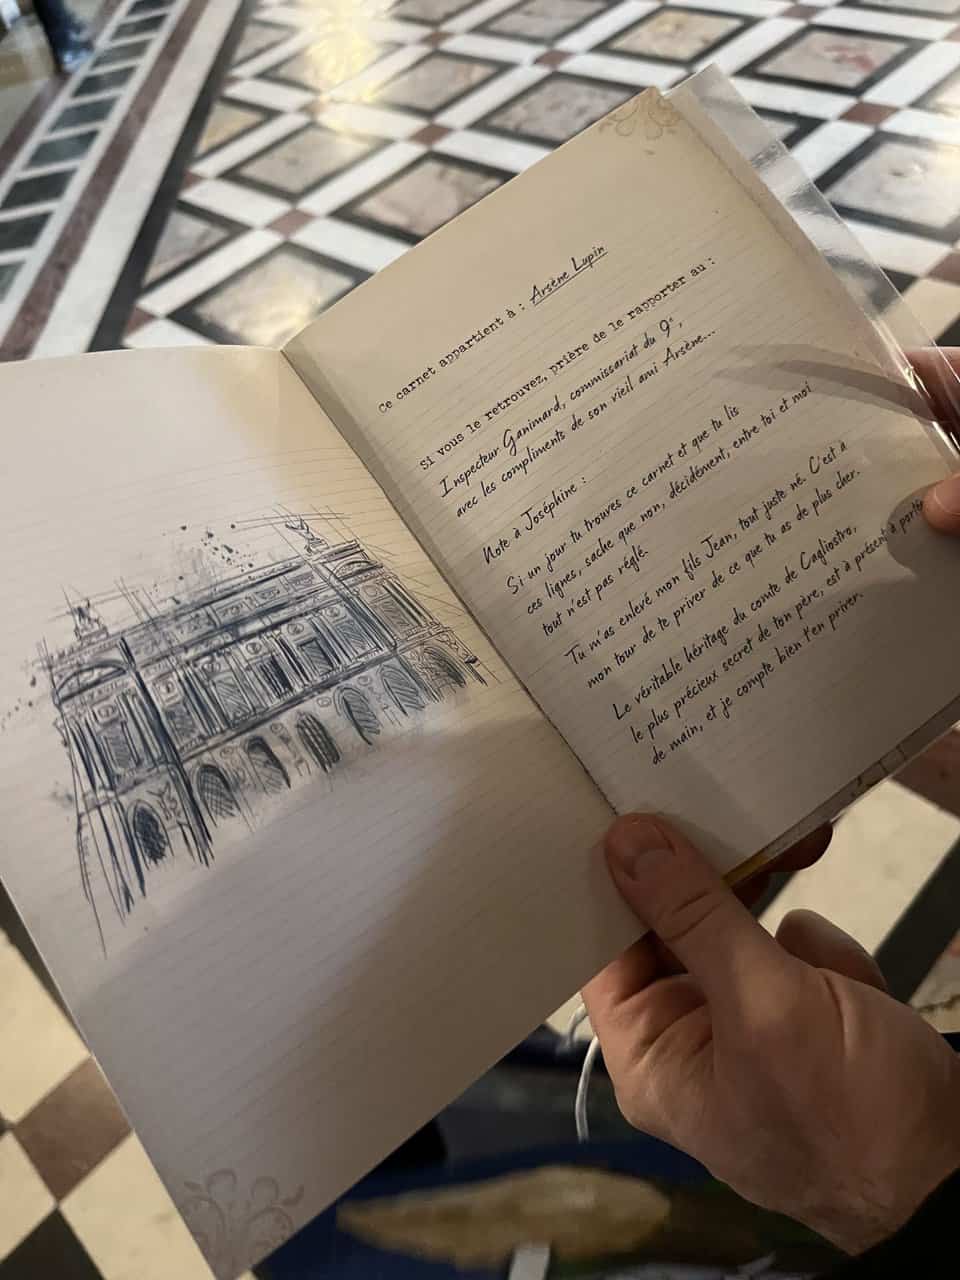 Ce carnet appartient à : Arsène Lupin
Si vous le retrouvez, prière de le rapporter au :
Inspecteur Ganimard, commissariat du 9e,
avec les compliments de son vieil ami Arsène...
Note à Joséphine :
Si un jour tu trouves ce carnet et que tu lis
ces lignes, sache que non, décidément, entre toi et moi
tout n'est pas réglé.
Tu m'as enlevé mon fils Jean, tout juste né. C'est à
mon tour de te priver de ce que tu as de plus cher.
Le véritable héritage du comte de Cagliostro,
le plus précieux secret de ton père, est à présent à portée
de main, et je compte bien t'en priver.